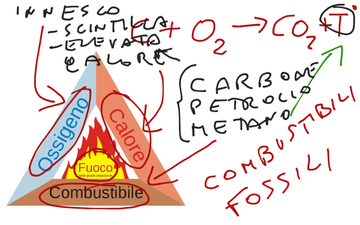 INNESCO
-SCINTILLA
-ELEVATO
CALORE
C + O2 → CO2 + T
CARBONE
PETROLIO
METANO
COMBUSTIBILI
FOSSILI
Ossigeno
Calore
Fuoco
Combustibile